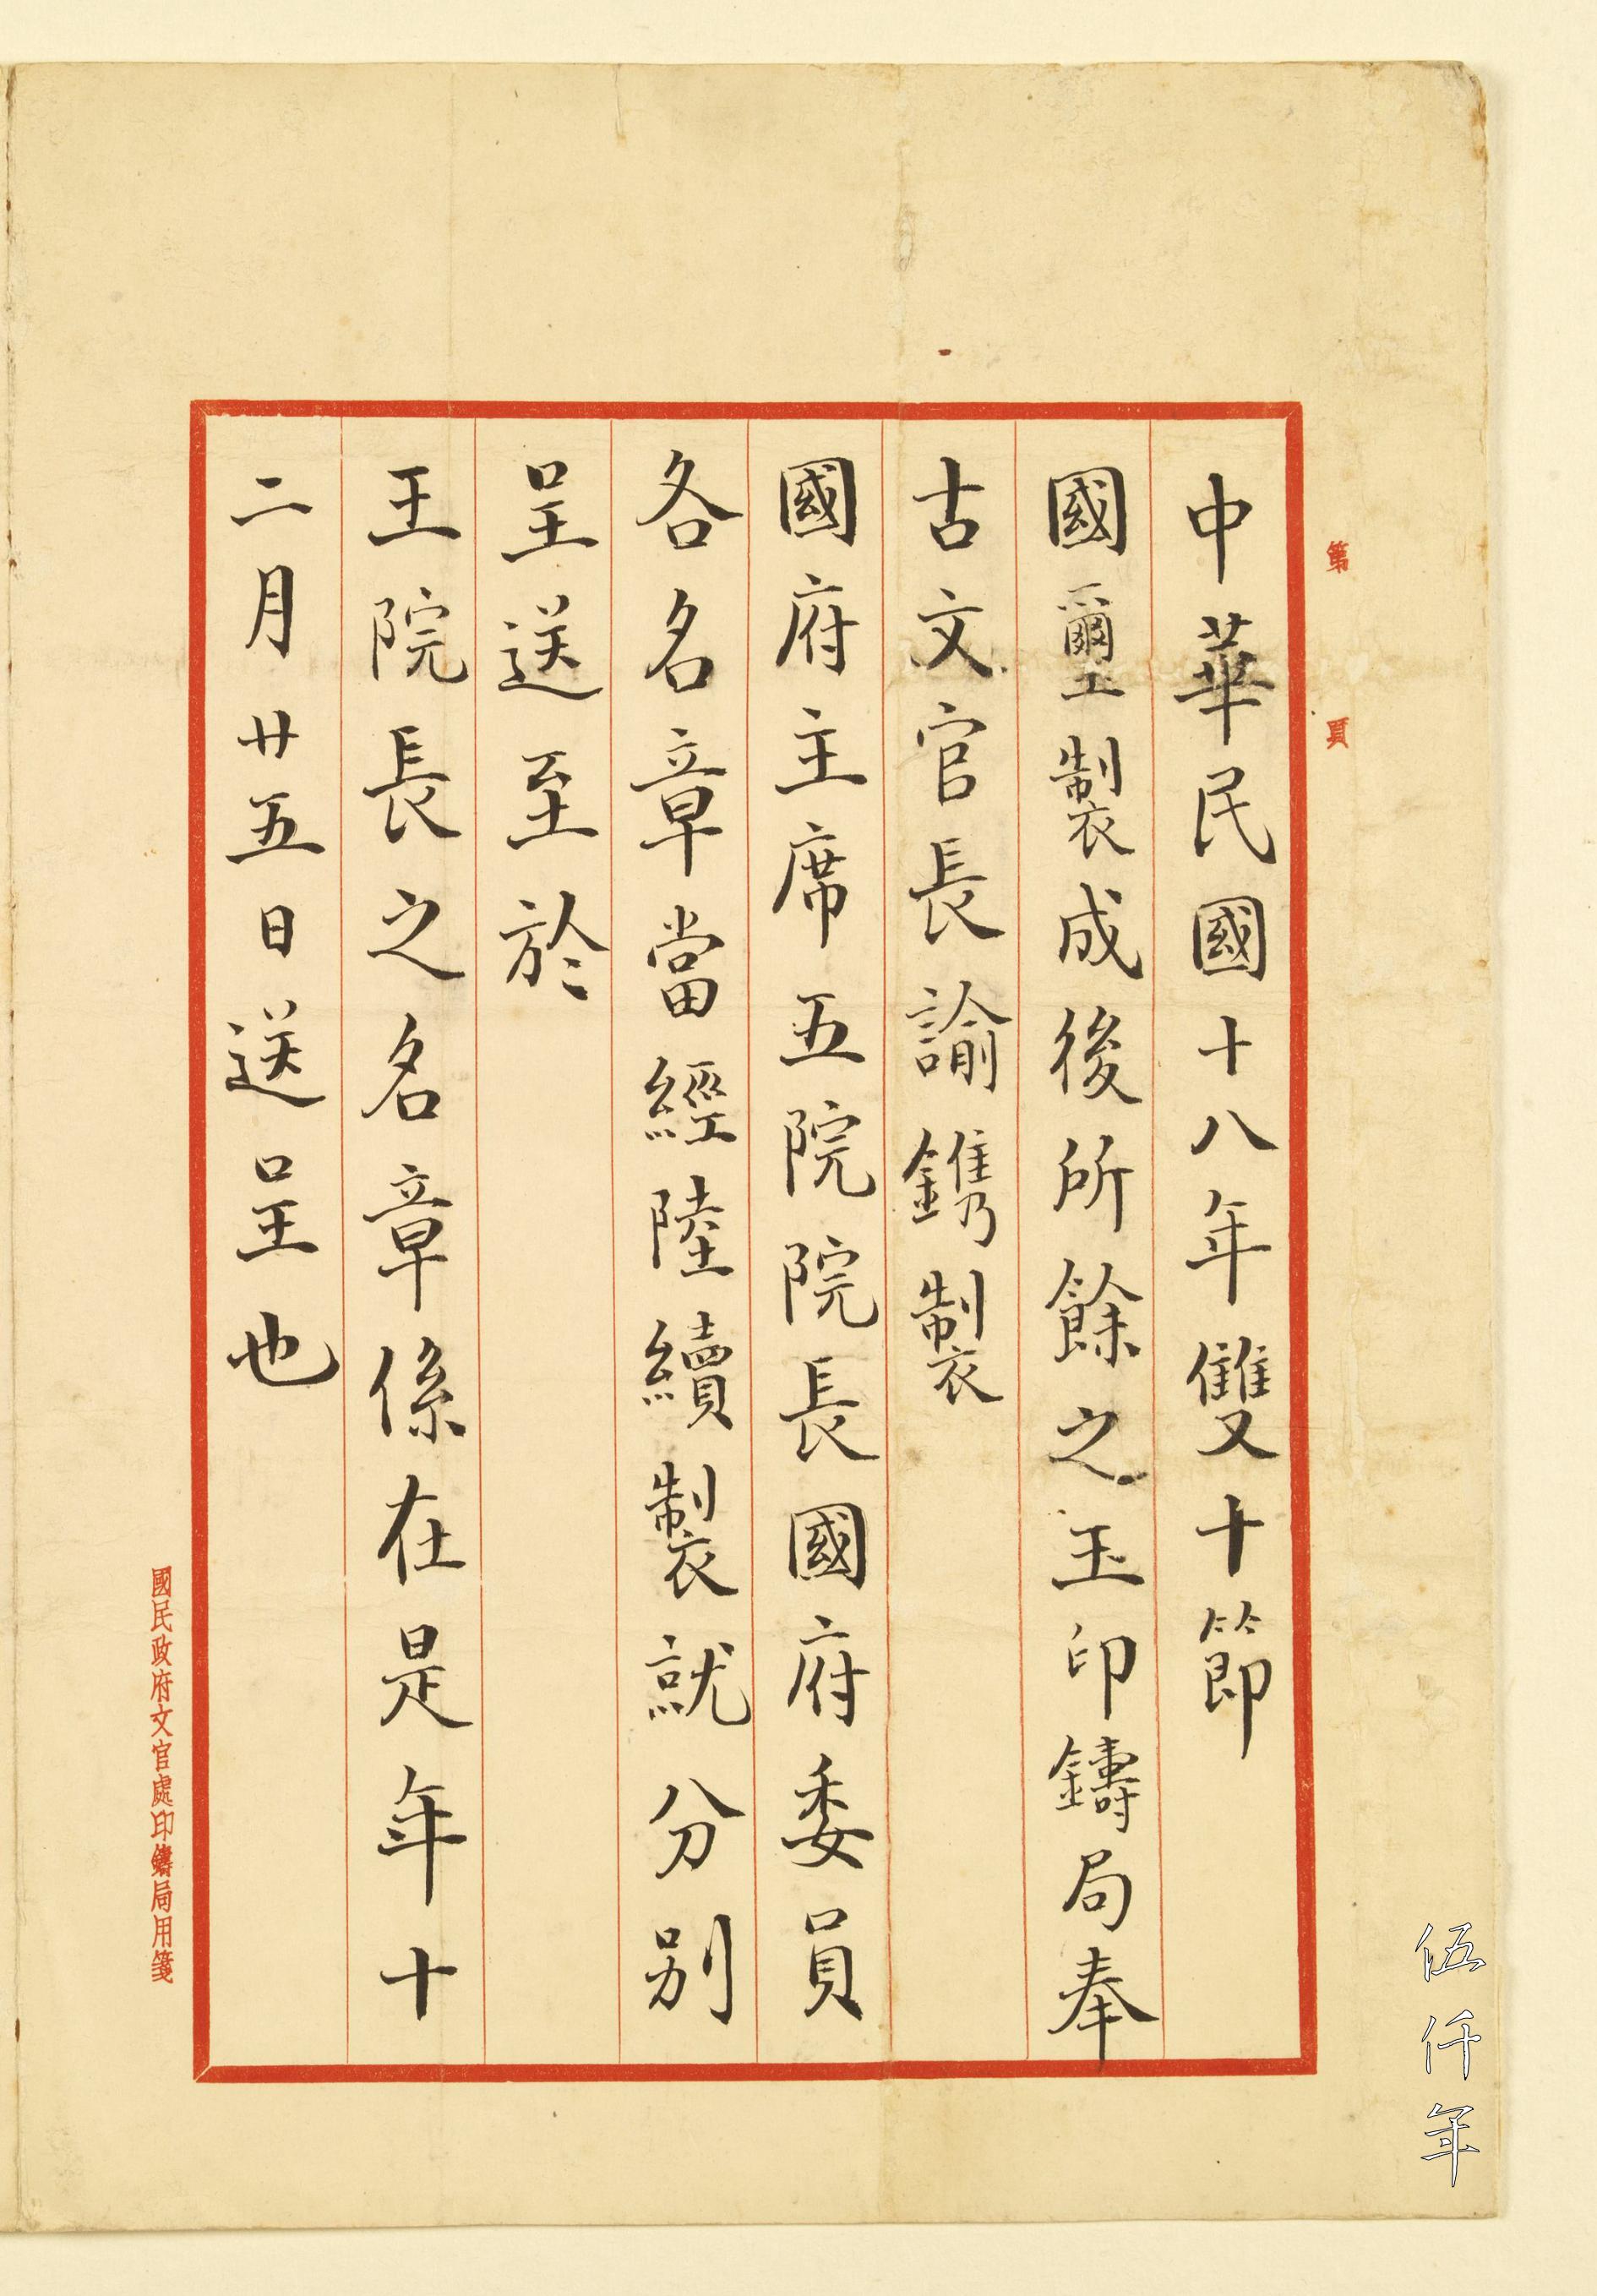 第 頁
中華民國十八年雙十節
國璽製成後所餘之玉印鑄局奉
古文官長諭鐫製
國府主席五院院長國府委員
各名章當經陸續製就分別
呈送至於
王院長之名章係在是年十
二月廿五日送呈也
國民政府文官處印鑄局用箋
伍仟年